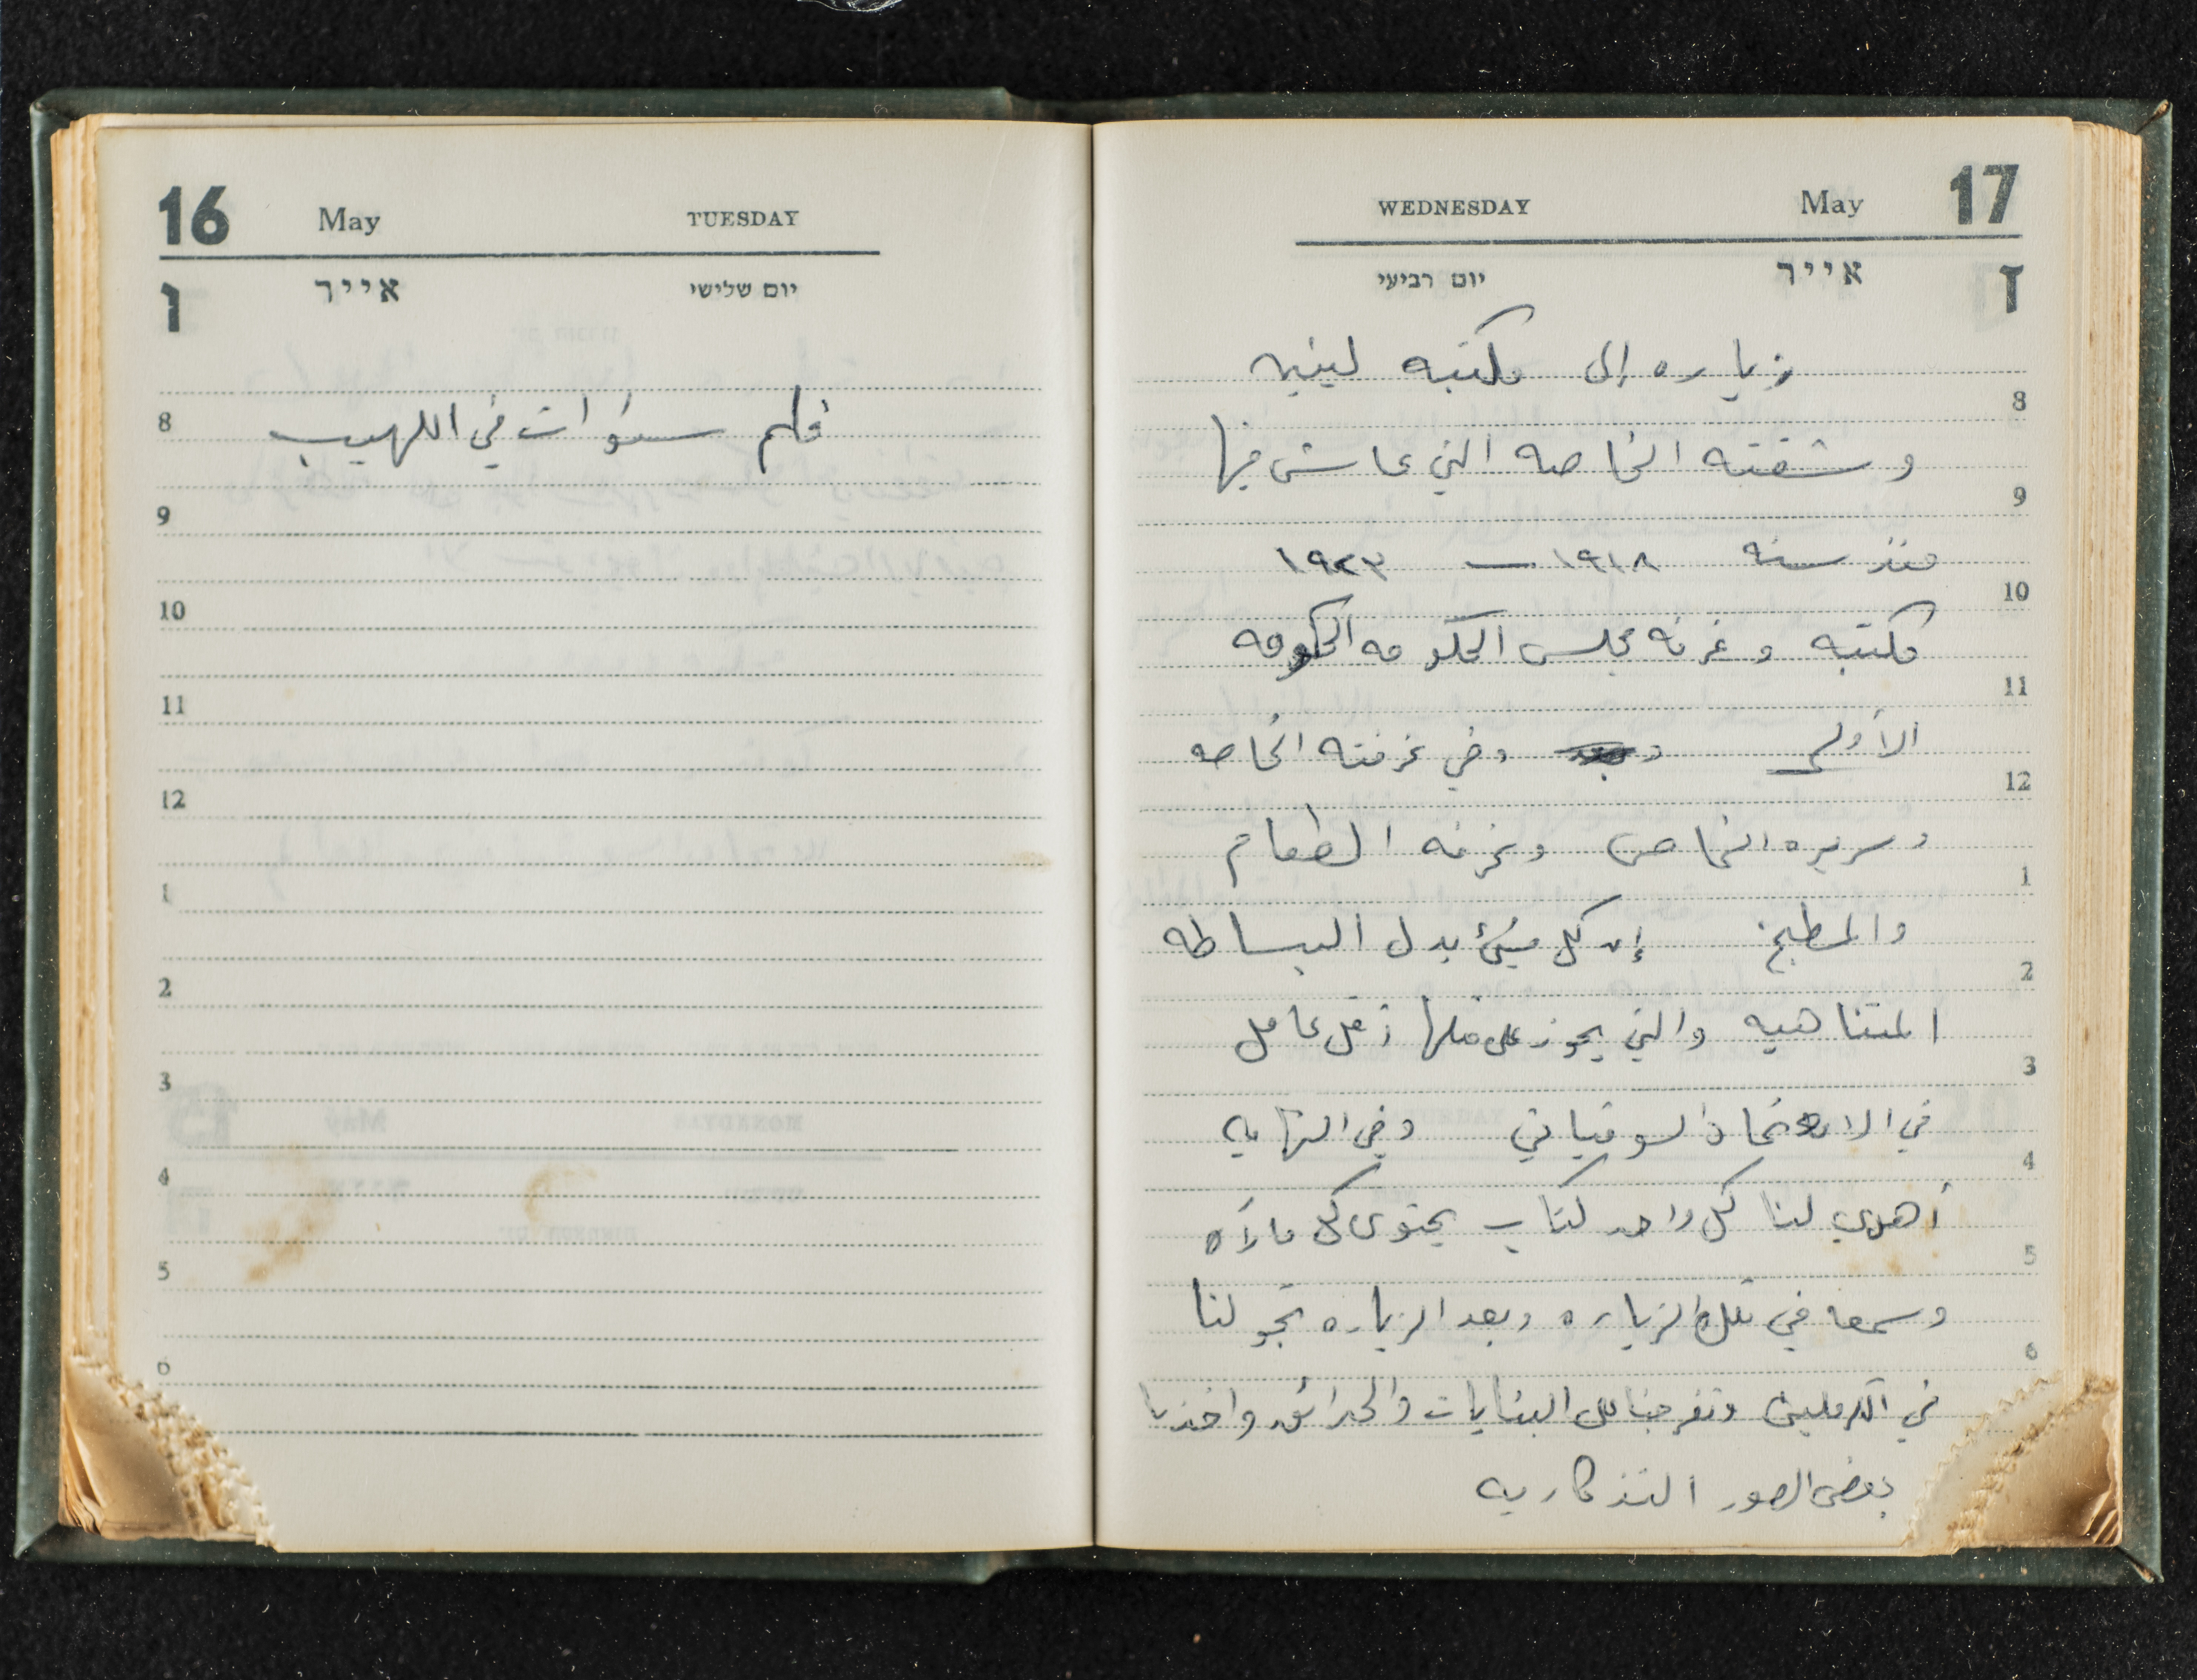 16 May TUESDAY
ו אייר יום שלישי
8
فلم سنوات في اللهيب
9
10
11
12
1
2
3
4
5
6
WEDNESDAY May 17
ז אייר יום רביעי
زياره إلى مكتبه لينين
8
وشقته الخاصه التي عاش فيها
9
منذ سنه ١٩١٨ – ١٩٢٣
10
مكتبه وغرفه مجلس الحكومه الحكومه
11
الأولى وفي غرفته الخاصه
12
وسريره الخاص وغرفه الطعام
1
والمطبخ إن كل شيئ يدل البساطه
2
المتناهيه والتي يحوز على مثلها أقل عامل
3
في الاتحاد السوفياتي وفي النهايه
4
أهدي لنا كل واحد كتاب يحتوى كل ما رآه
5
وسمعه في تلك الزياره وبعد الزياره تجولنا
6
في الكرملين وتفرجنا على البنايات والحدائق واخذنا
بعض الصور التذكاريه